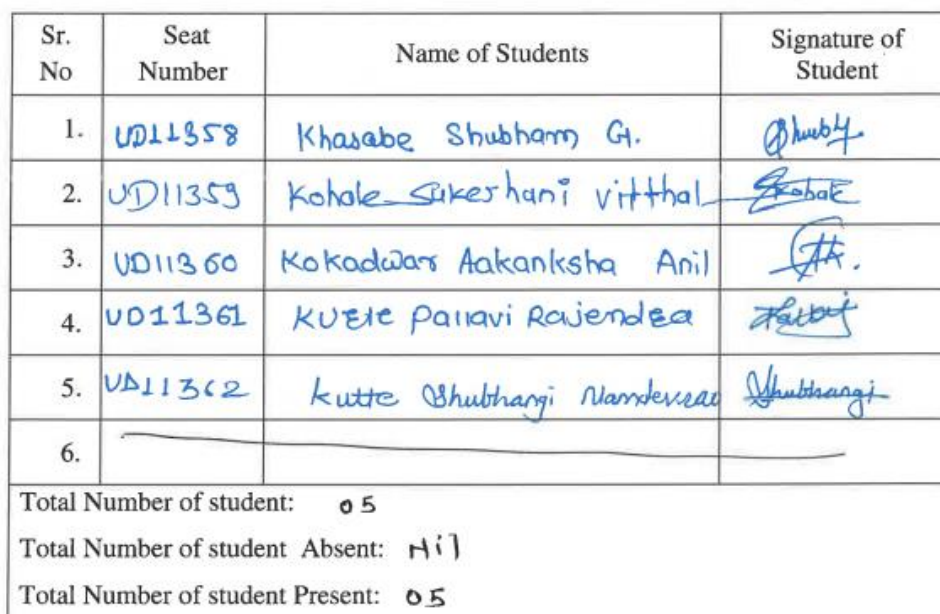 Sr. No Seat Number Name of Students Signature of Student
1. UD11358 Khasabe Shubham G. Shubh
2. UD11359 Kohale Sukeshani Vitthal Skohale
3. UD11360 Kokadwar Aakanksha Anil
4. UD11361 Kuete Pallavi Rajendea
5. UD11362 Kutte Shubhangi Namdevrao Shubhangi
6.
Total Number of student: 05
Total Number of student Absent: Nil
Total Number of student Present: 05